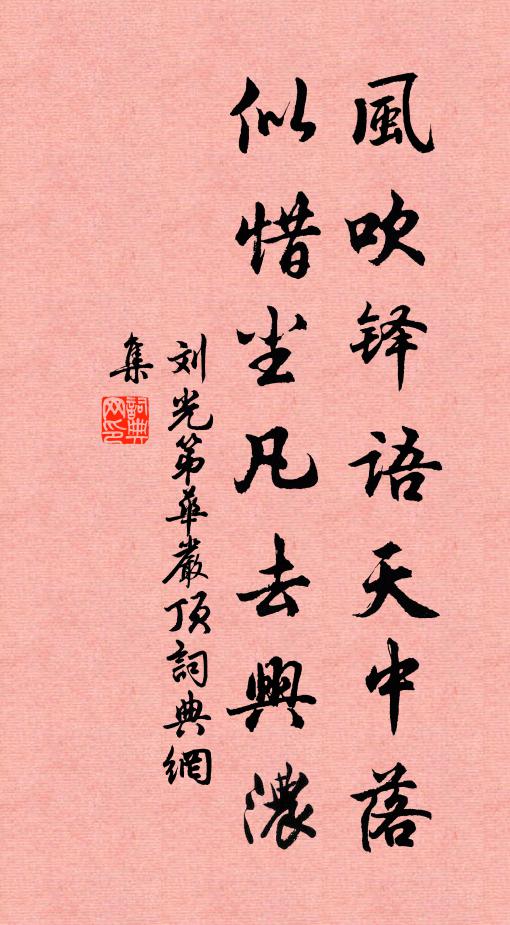 風吹铎語天中落
似惜尘凡去興濃
刘光第華嚴頂詞典網
集
詞典网印